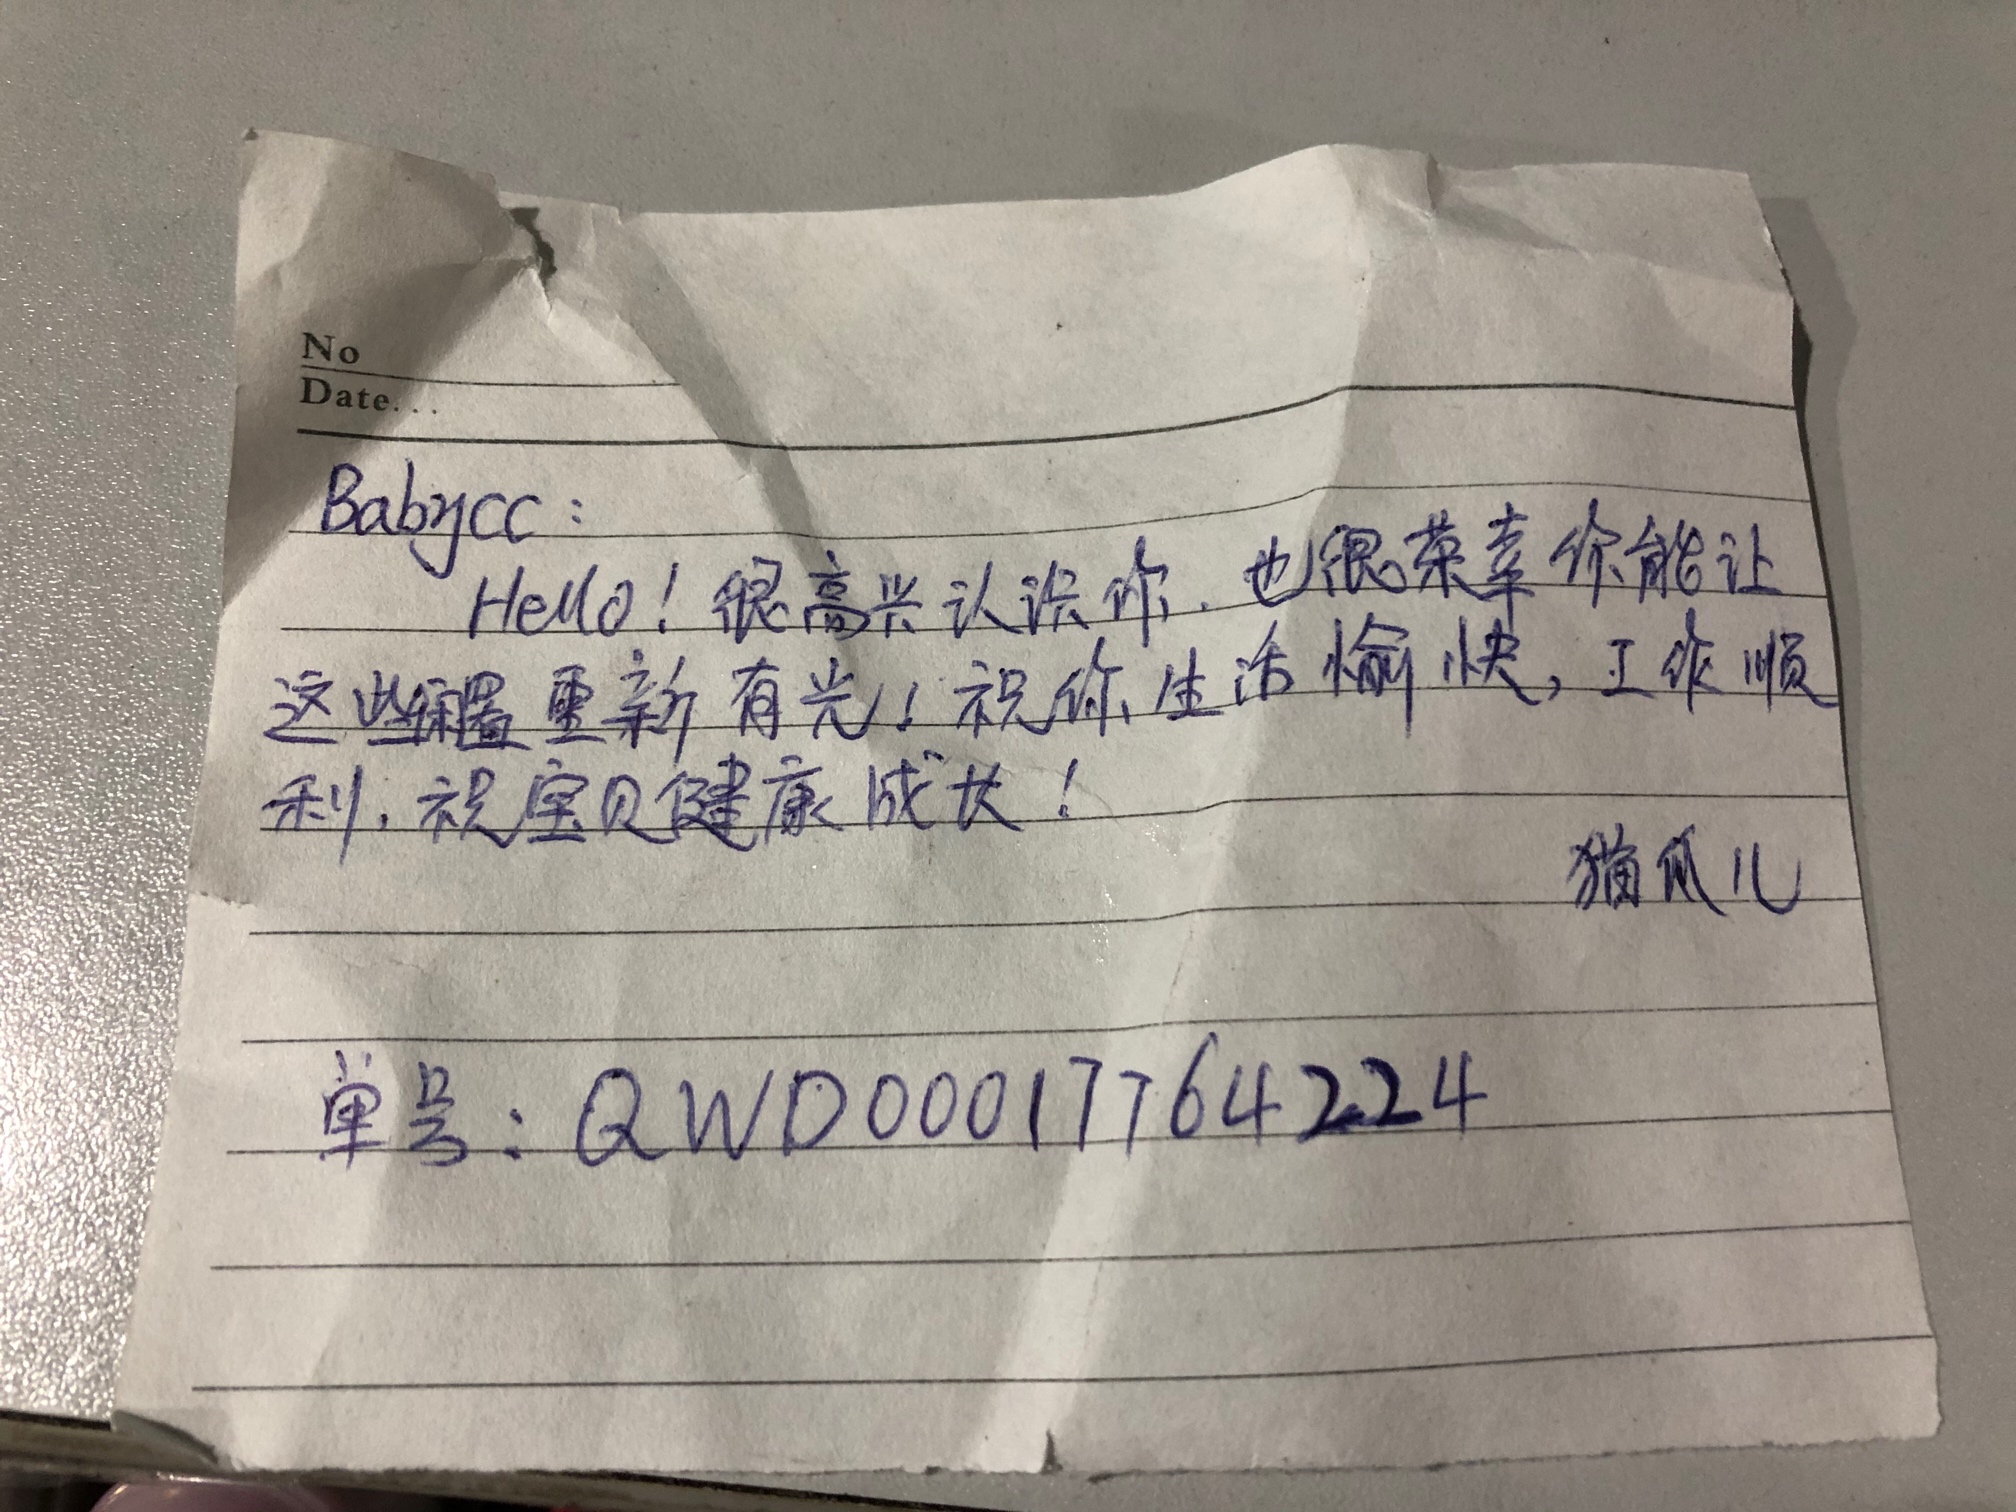 No
Date...
Babycc：
Hello！很高兴认识你．也很荣幸你能让
这些闲置重新有光！祝你生活愉快，工作顺
利．祝宝贝健康成长！
猫爪儿
单号：QWD00017764224